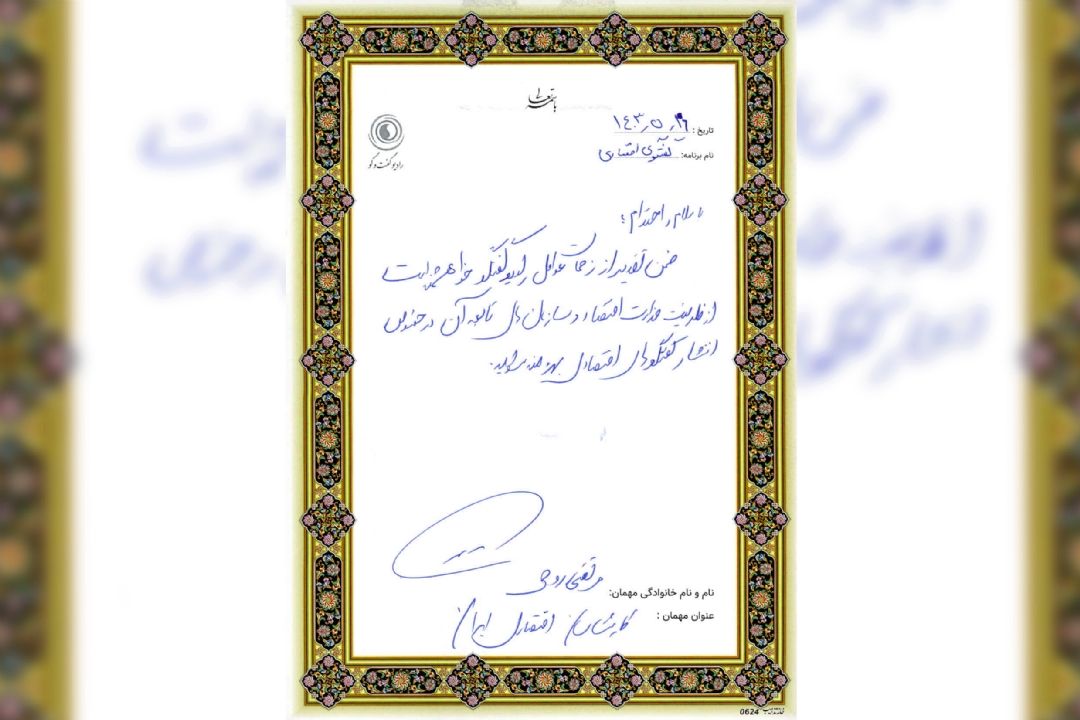 باسمه تعالی
رادیو گفت و گو
تاریخ : ۱۴۰۳٫۵٫۱۶
نام برنامه: گفتگوی اقتصادی
با سلام و احترام؛
ضمن تقدیر از زحمات عوامل رادیو گفتگو خواهشمند است
از ظرفیت وزارت اقتصاد و سازمان های تابعه آن در خصوص
انتشار گفتگوهای اقتصادی بهره مند شوید.
نام و نام خانوادگی مهمان: مرتضی
عنوان مهمان : کارشناس اقتصادی ایران
0624